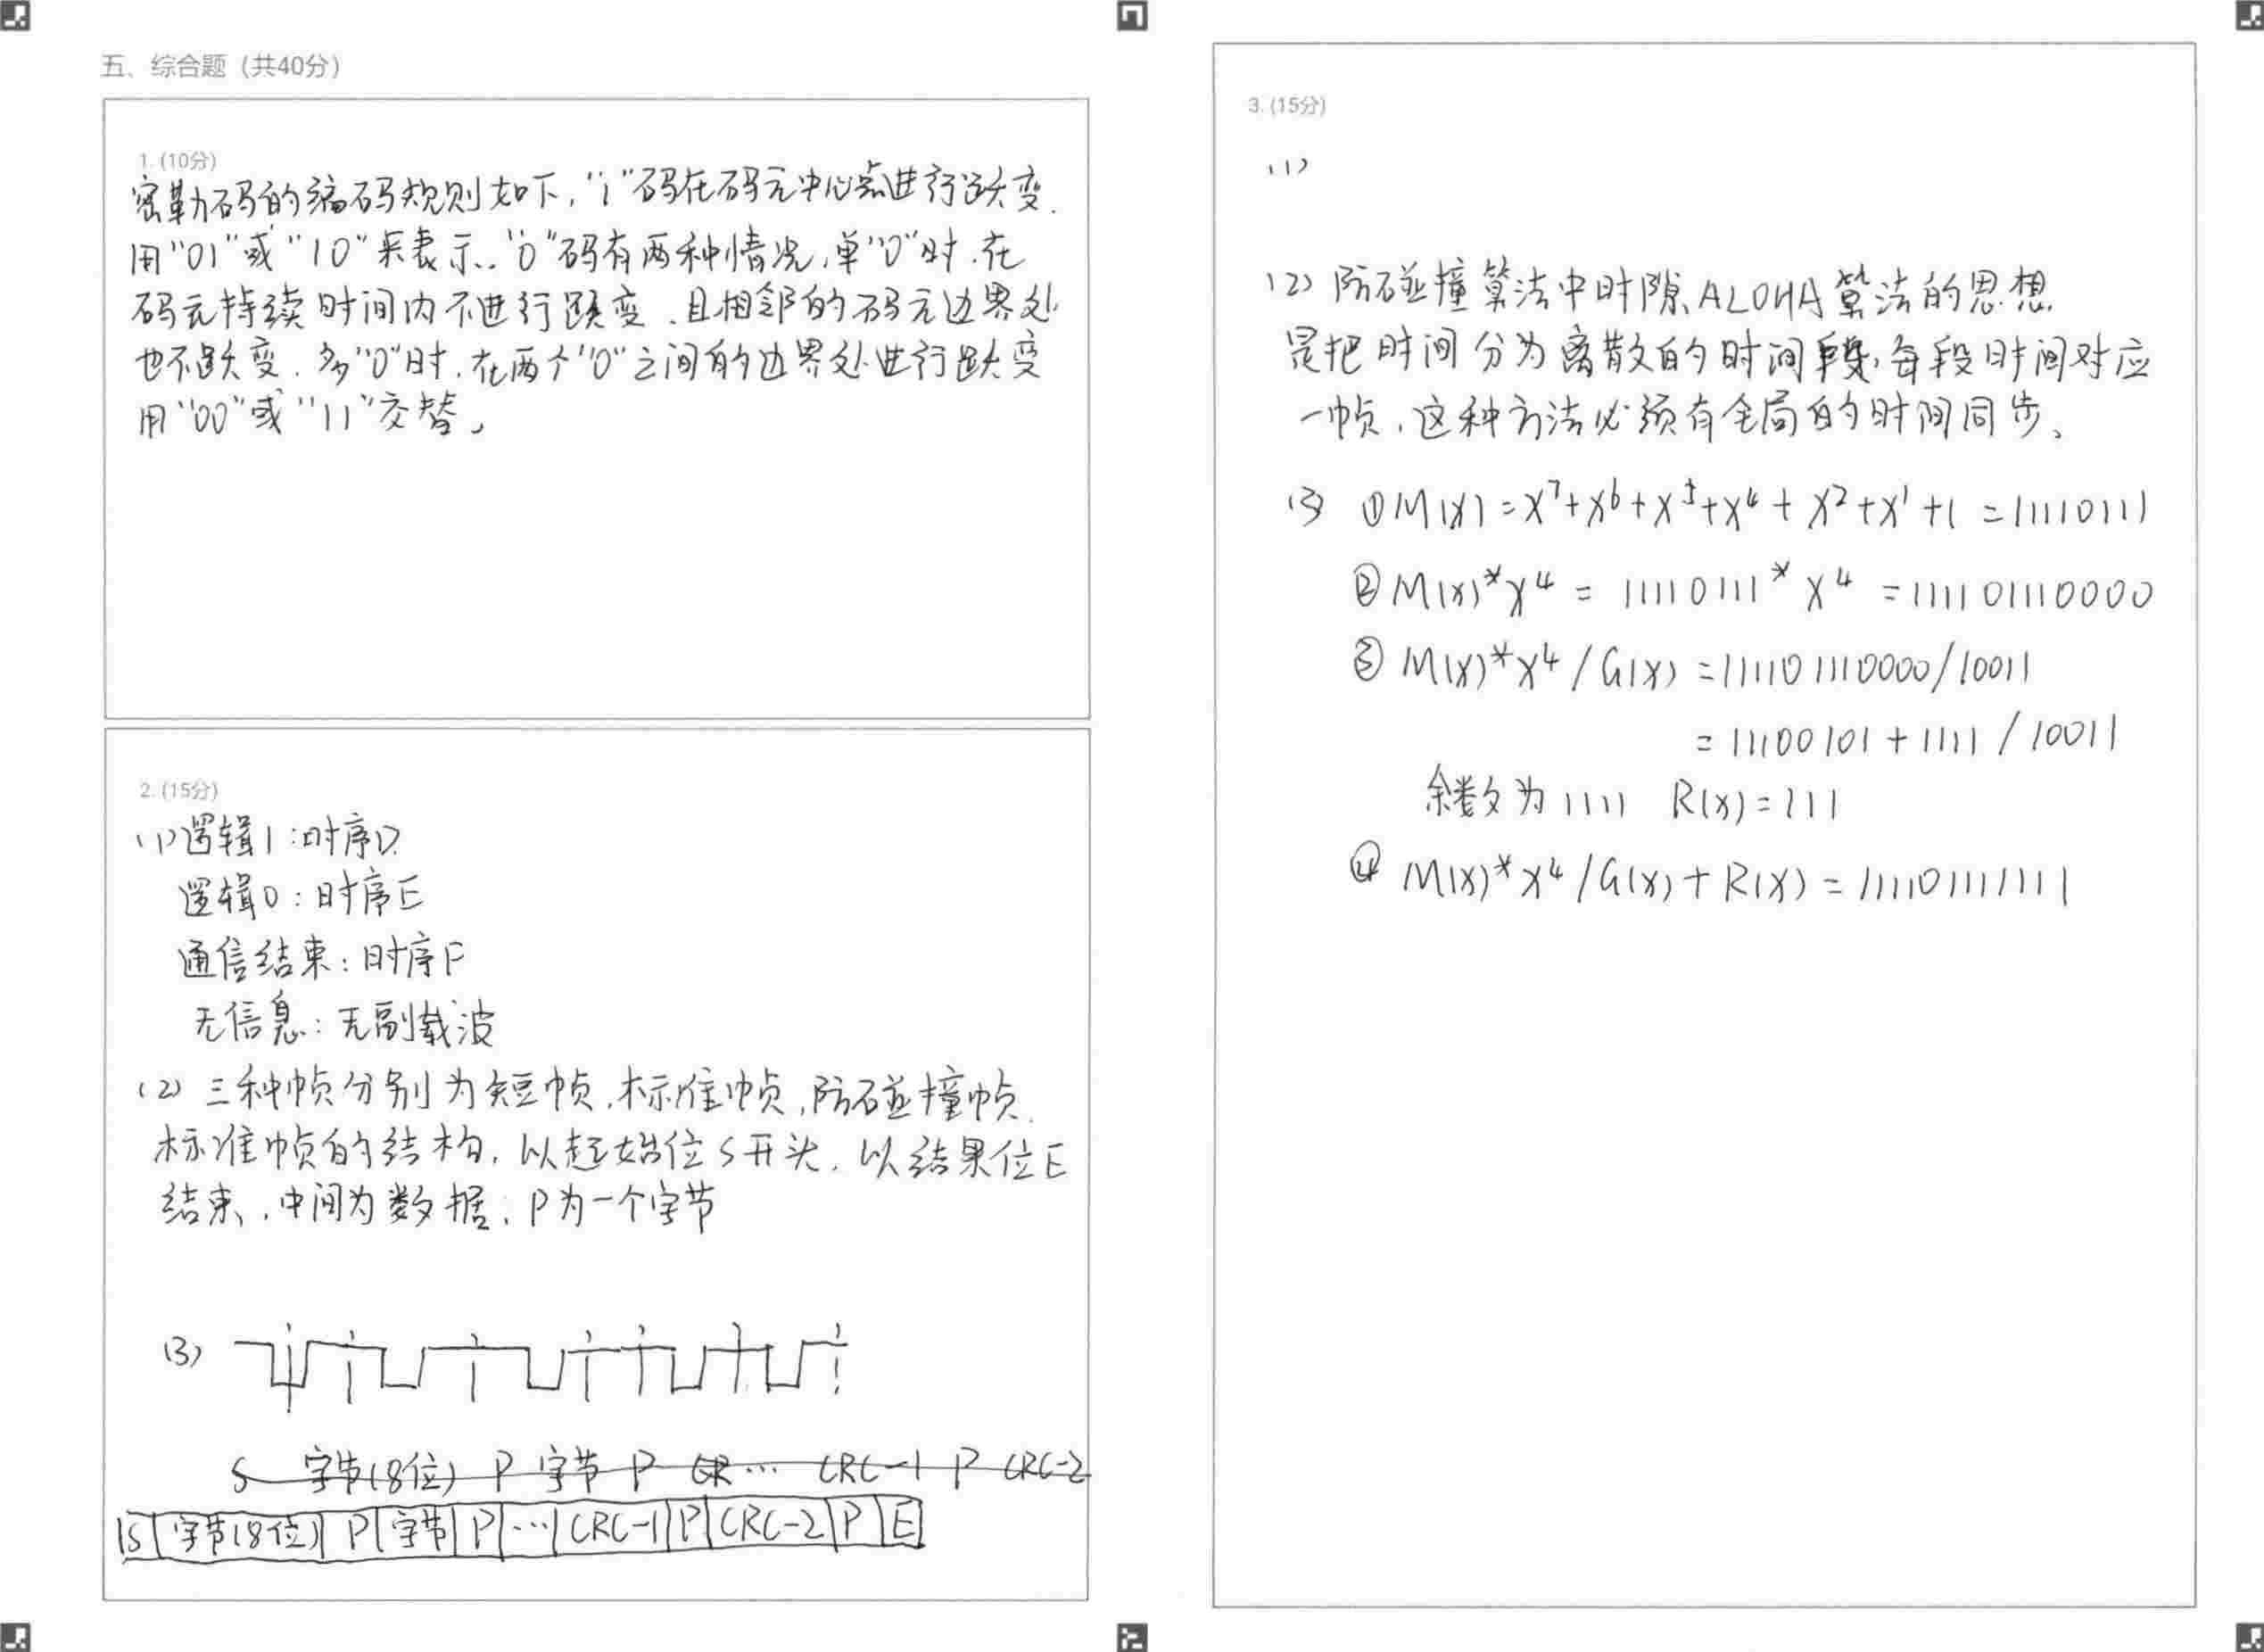 五、综合题（共40分）
1. (10分)
密勒码的编码规则如下，“1”码在码元中心点进行跃变.
用“01”或“10”来表示.“0”码有两种情况，单“0”时.在
码元持续时间内不进行跃变.且相邻的码元边界处
也不跃变.多“0”时.在两个“0”之间的边界处进行跃变
用“00”或“11”交替。
2. (15分)
(1)逻辑1:时序D.
逻辑0:时序E
通信结束:时序F
无信息:无副载波
(2) 三种帧分别为短帧,标准帧,防碰撞帧.
标准帧的结构,以起始位S开头,以结果位E
结束,中间为数据;P为一个字节
(3)
S 字节(8位) P 字节 P CR … CRC-1 P CRC-2
S 字节(8位) P 字节 P … CRC-1 P CRC-2 P E
3. (15分)
(1)
(2) 防碰撞算法中时隙ALOHA算法的思想
是把时间分为离散的时间段,每段时间对应
一帧,这种方法必须有全局的时间同步、
(3) ①M(x)=x⁷+x⁶+x⁵+x⁴+x²+x¹+1=11110111
②M(x)*x⁴=11110111*x⁴=111101110000
③M(x)*x⁴/G(x)=111101110000/10011
=11100101+1111/10011
余数为1111 R(x)=111
④M(x)*x⁴/G(x)+R(x)=111101111111